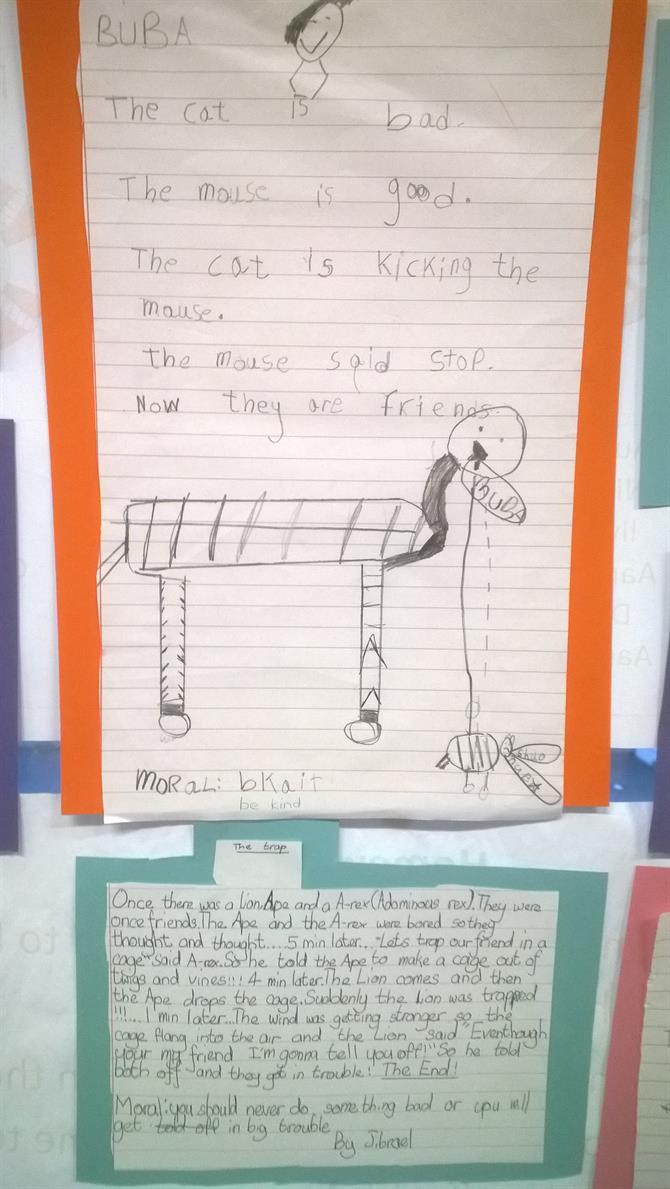 BUBA
The cat is bad.
The mouse is good.
The cat is kicking the
mouse.
the mouse said stop.
Now they are friends.
BUBA
MORAL: bkait
be kind
The trap
Once there was a Lion, Ape and a A-rex (Adominous rex). They were
once friends. The Ape and the A-rex were bored so they
thought and thought.....5 min later... "Lets trap our friend in a
cage" said A-rex. So he told the Ape to make a cage out of
twigs and vines!!! 4 min later. The Lion comes and then
the Ape drops the cage. Suddenly the Lion was trapped
!!!....1 min later... The wind was getting stronger so the
cage flang into the air and the Lion said "Eventhough
your my friend I'm gonna tell you off!" So he told
both off and they got in trouble! The End!
Moral: you should never do something bad or you will
get told off in big trouble
By Jibrael